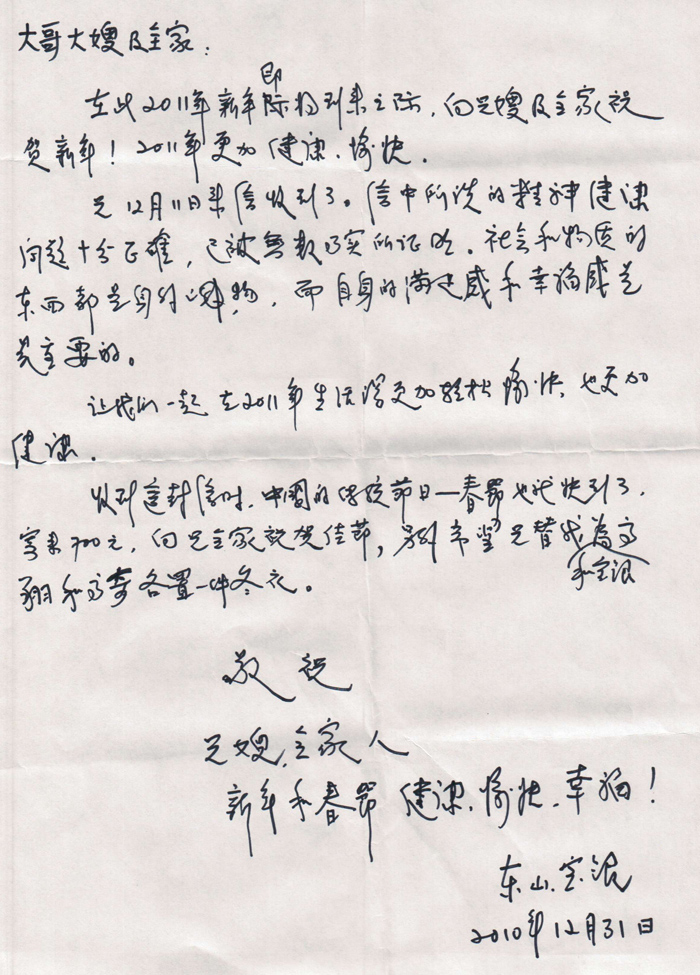 大哥大嫂及全家：
在此2011年新年即将到来之际，向兄嫂及全家祝
贺新年！2011年更加健康、愉快．
兄12月11日来信收到了。信中所说的精神健康
问题十分正确，已被无数事实所证明．社会和物质的
东西都是身外之物，而自身的满足感和幸福感是
最主要的。
让我们一起在2011年生活得更加轻松愉快，也更加
健康．
收到这封信时，中国的传统节日—春节也就快到了．
寄来700元，向兄全家祝贺佳节，另外希望兄替我和宝银为高
翔和高 各置一件冬衣。
敬祝
兄嫂、全家人
新年和春节 健康、愉快、幸福！
东山、宝银
2010年12月31日